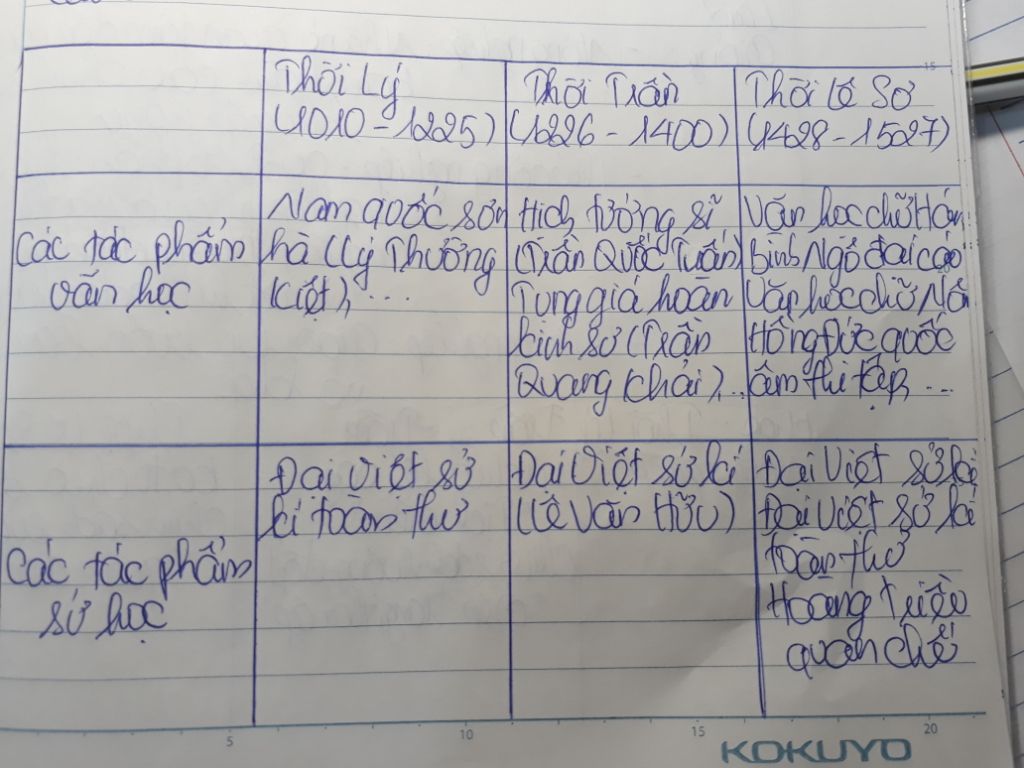 Thời Lý
(1010 - 1225)
Thời Trần
(1226 - 1400)
Thời Lê Sơ
(1428 - 1527)
Các tác phẩm
văn học
Nam quốc sơn
hà (Lý Thường
Kiệt), ...
Hịch tướng sĩ
(Trần Quốc Tuấn)
Tụng giá hoàn
kinh sư (Trần
Quang Khải), ...
Văn học chữ Hán
Bình Ngô đại cáo
Văn học chữ Nôm
Hồng Đức quốc
âm thi tập, ...
Các tác phẩm
sử học
Đại Việt sử
kí toàn thư
Đại Việt sử kí
(Lê Văn Hữu)
Đại Việt sử kí
Đại Việt sử kí
toàn thư
Hoàng Triều
quan chế
15
5
10
15
20
KOKUYO